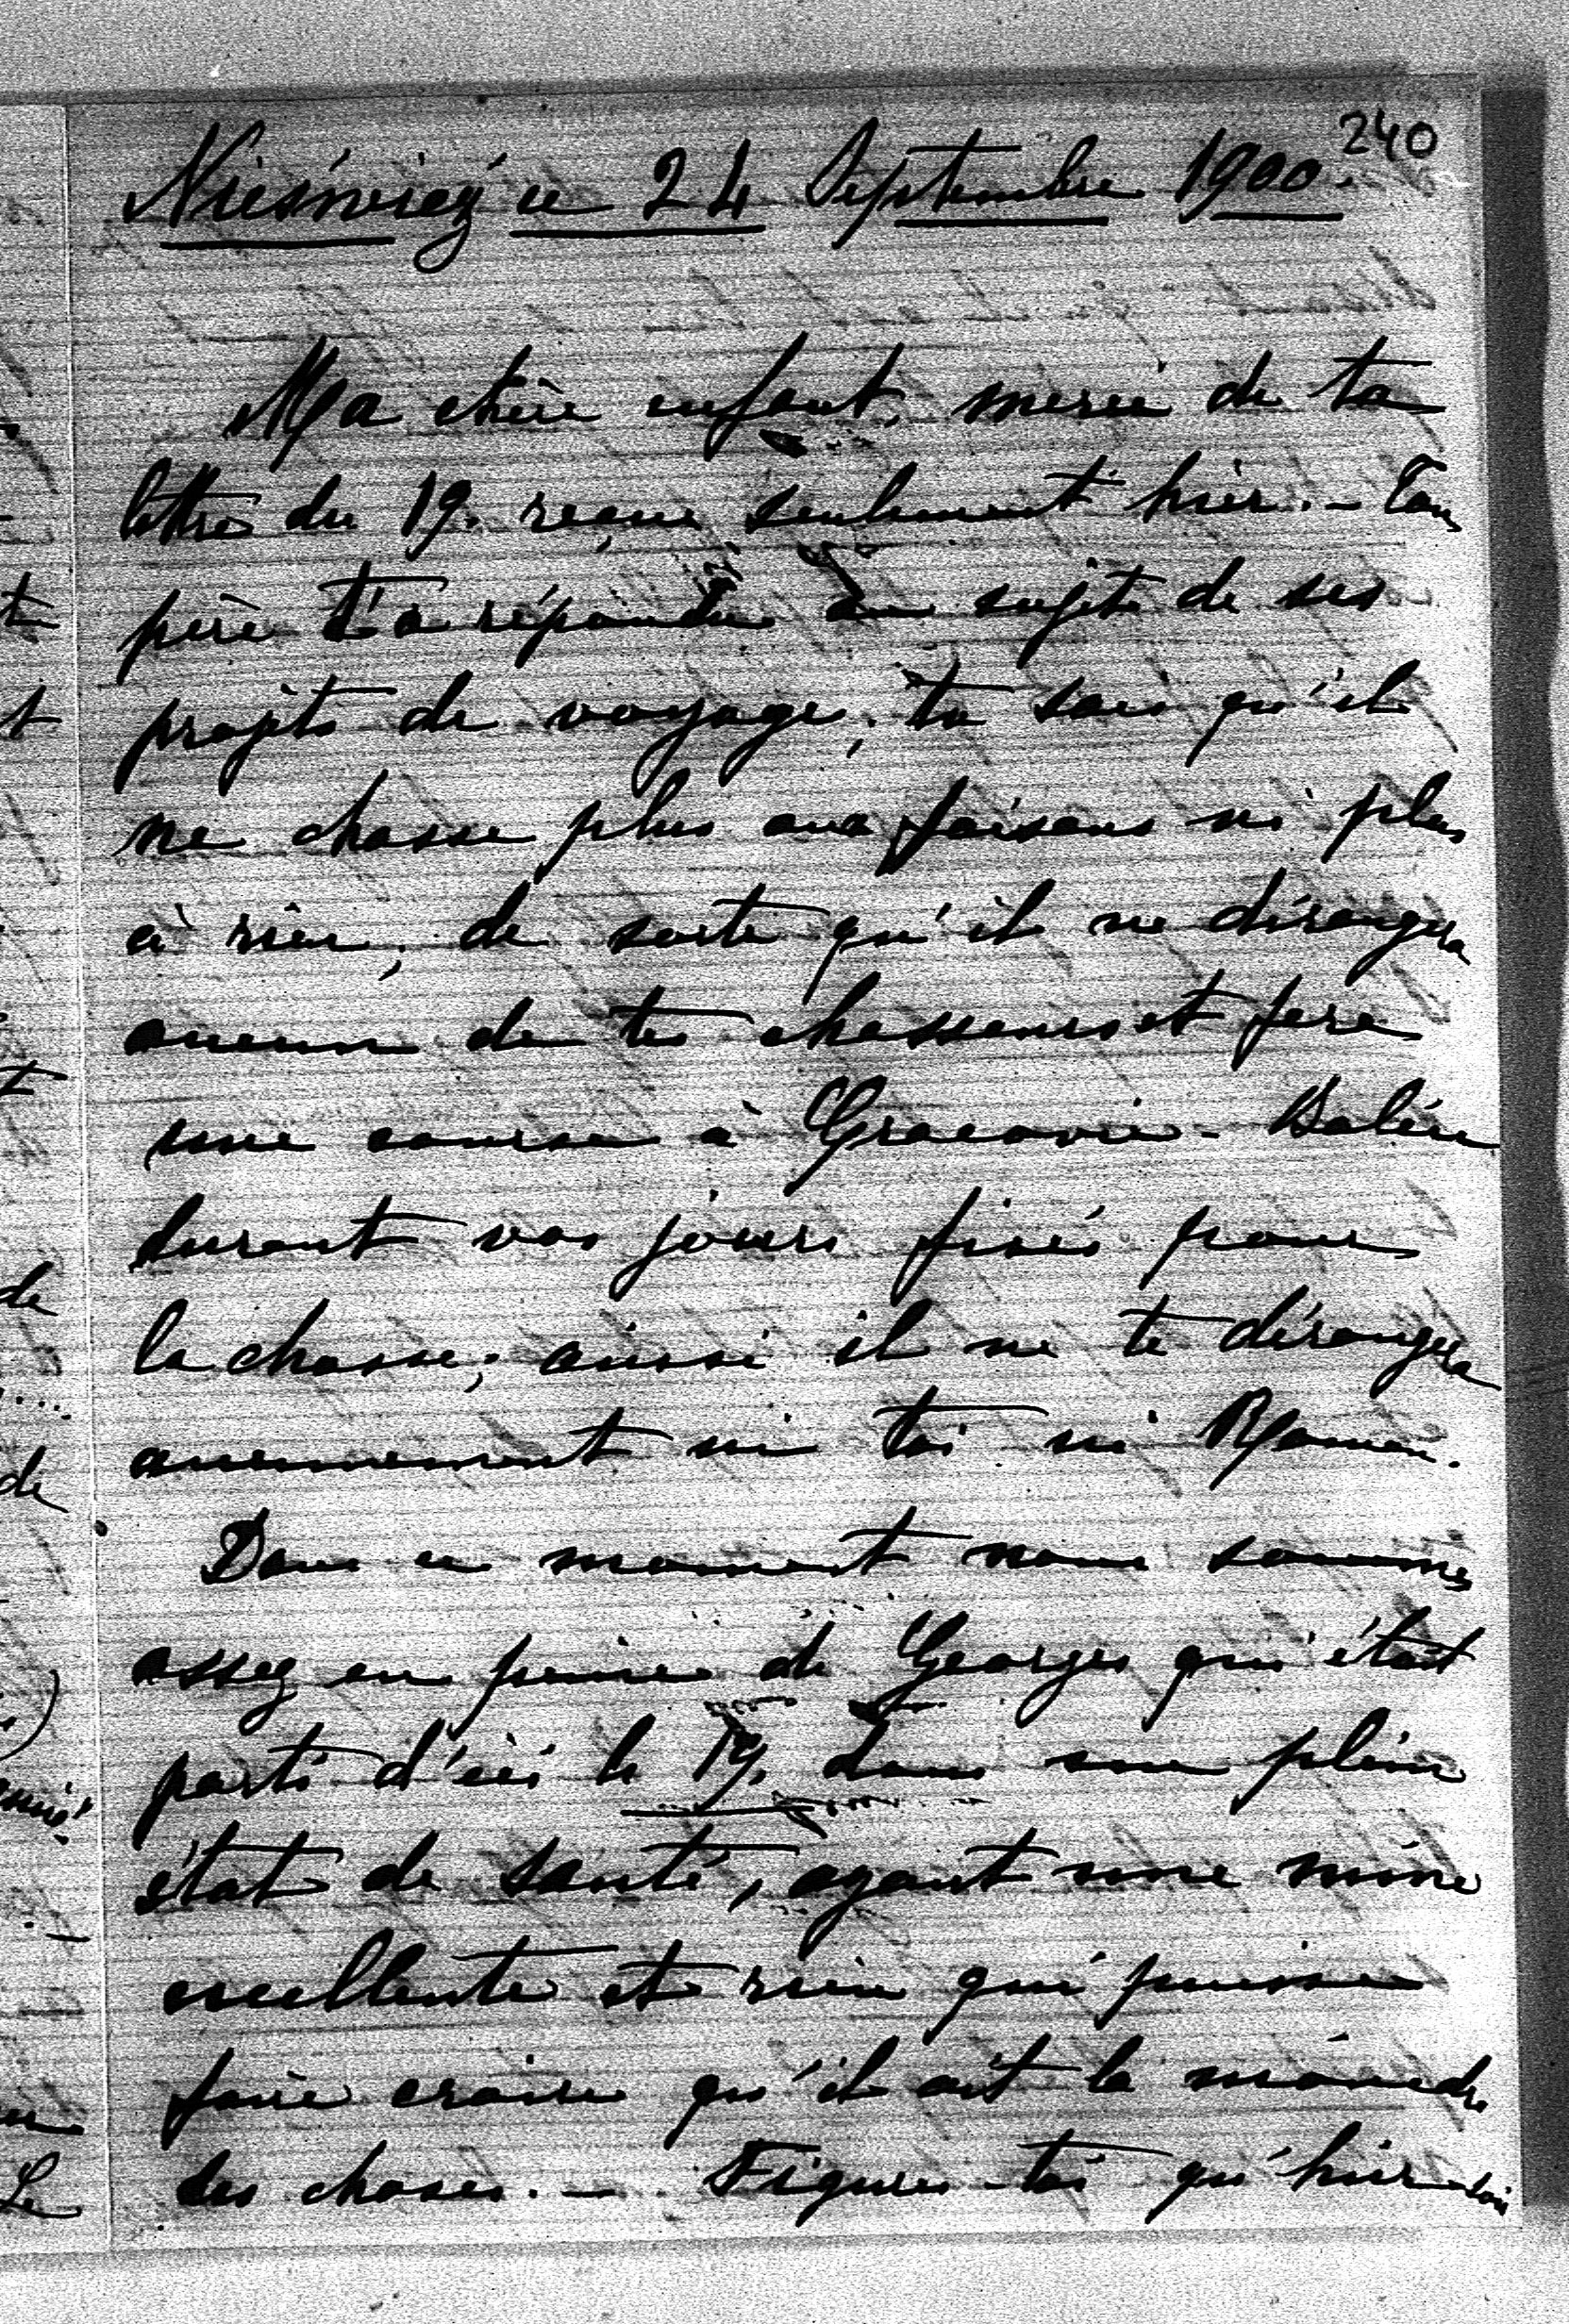 240
Nieśwież ce 24 Septembre 1900.
Ma chère enfant, merci de ta
lettre du 19. reçue seulement hier. – Ton
père t'a répondu au sujet de ses
projets de voyage; tu sais qu'il
ne chasse plus aux faisans ni plus
à rien, de sorte qu'il ne dérangera
aucun de tes chasseurs et fera
une course à Cracovie - Balice
durant vos jours fixés pour
la chasse; ainsi il ne te dérangera
aucunement ni toi ni Roman.
Dans ce moment nous sommes
assez en peine de Georges qui était
parti d'ici le 19. dans un plein
état de santé, ayant une mine
excellente et rien qui puisse
faire croire qu'il ait la moindre
des choses. – Figures-toi qu'hier soir